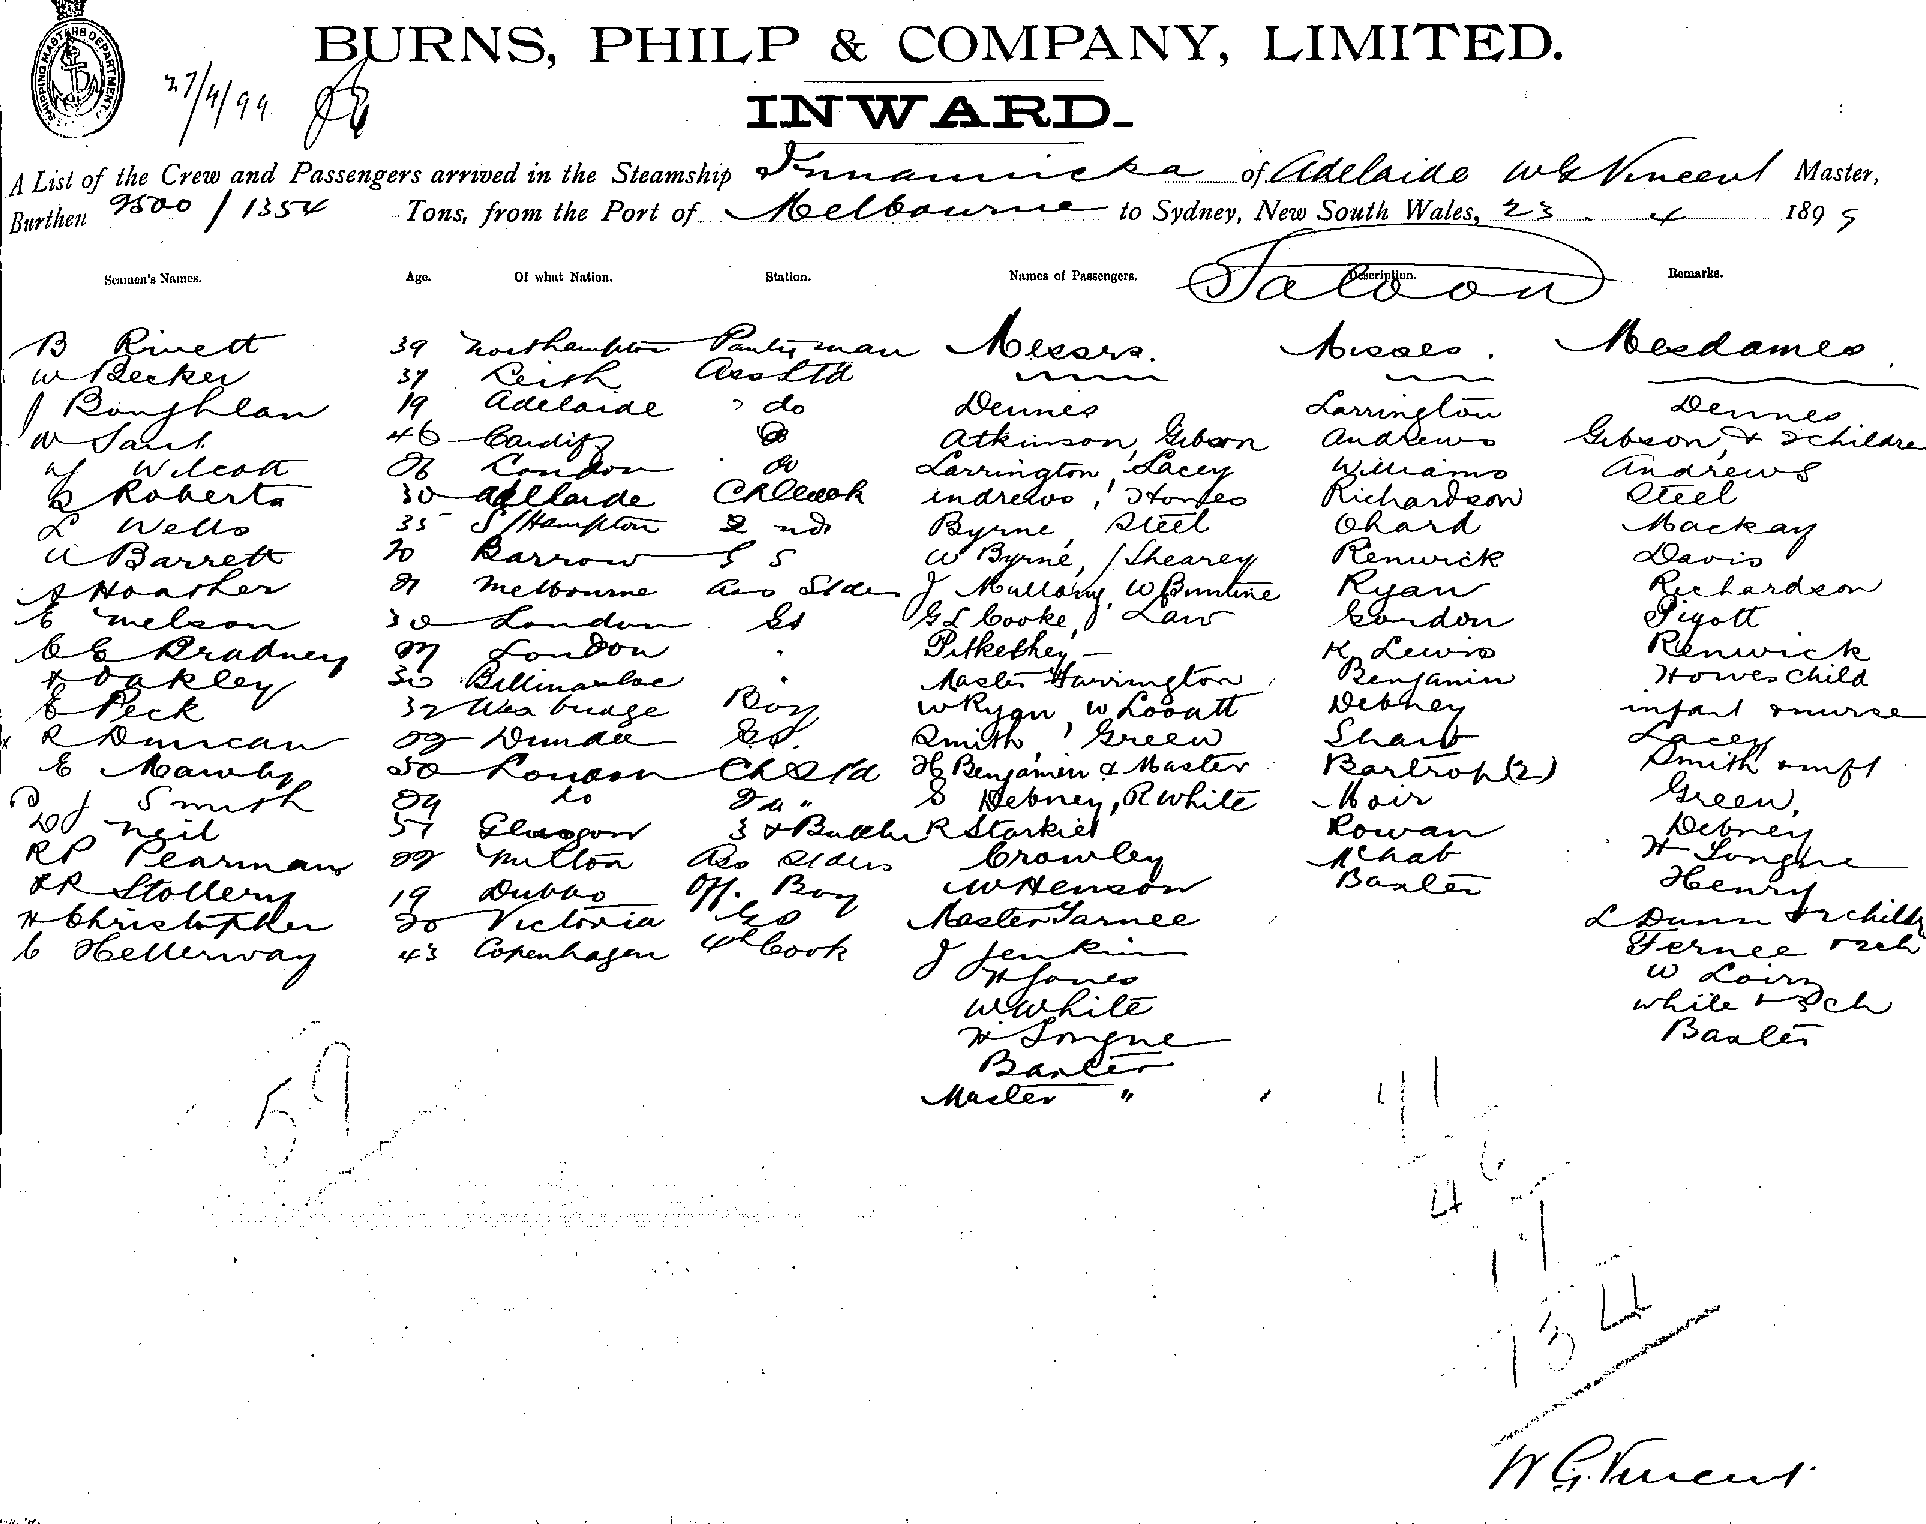 BURNS, PHILP & COMPANY, LIMITED.
SHIPPING MASTERS DEPARTMENT
27/4/99
INWARD.
A List of the Crew and Passengers arrived in the Steamship Innamincka of Adelaide W G Vincent Master,
Burthen 2500 / 1354 Tons, from the Port of Melbourne to Sydney, New South Wales, 23 . 4 1899
Saloon
Seamen's Names. Age. Of what Nation. Station. Names of Passengers. Description. Remarks.
B Rivett 39 Northampton Pantryman Messrs. Misses. Mesdames
W Becker 37 Leith Ass Std
J Boughlan 19 Adelaide do Dennes Larrington Dennes
W 46 Cardiff do Atkinson, Gibson Andrews Gibson, & 2 childre
Wilcott 26 London do Larrington, Lacey Williams Andrews
Roberts 30 Adelaide Ch Cook Andrews, Howes Richardson Steel
L Wells 35 S/Hampton 2 nd Byrne, Steel Ohard Mackay
A Barrett 20 Barrow G S W Byrne, Shearey Renwick Davis
A Hoather 21 Melbourne Ass Stdes J Mullany, W Buntine Ryan Richardson
E Melson 30 London GS G L Cooke, Law Gordon Pigott
C E Bradney 27 London " Pitkethey K Lewis Renwick
H Oakley 30 " Master Harrington Benjamin Howes child
E Peck 32 Boy W Ryan, W Lovatt Debney infant & nurse
R Duncan 22 Dundee GS. Smith, Green Sharb Lacey
E Mawby 50 London Ch Std H Benjamin & Master Bartrop (2) Smith & inft
D J Smith 24 do 2nd " S Debney, R White Moir Green,
D J Neil 57 Glasgow 3 & Butcher R Starkie Rowan Debney
R P Pearman 22 Milton Ass Stdes Crowley McNab H Longue
R Stollery 19 Dubbo Off. Boy W Henson Baxter Henry
H Christopher 20 Victoria GS Master Farnee L Dunn & 2 childn
C Hellerway 43 Copenhagen 4th Cook J Jenkin Fernee & 2 ch
H Jones W
W White White & 3 ch
H Longue Baxter
Baxter
Master "
59
41
46
134
W G. Vincent